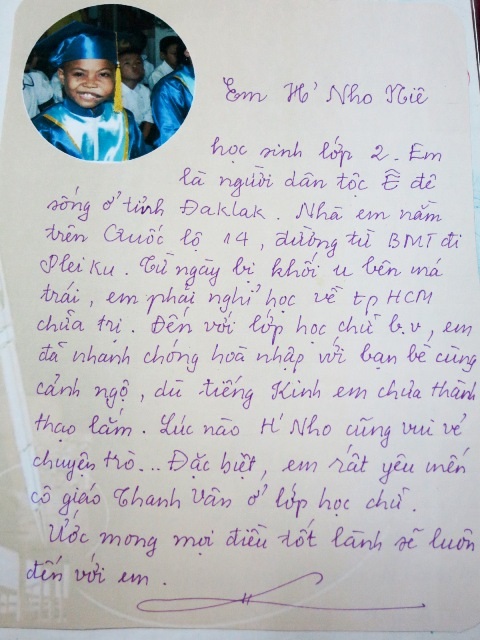 Em H' Nho Niê
học sinh lớp 2. Em
là người dân tộc Ê đê
sống ở tỉnh Đaklak. Nhà em nằm
trên Quốc lộ 14, đường từ BMT đi
Pleiku. Từ ngày bị khối u bên má
trái, em phải nghỉ học về tp HCM
chữa trị. Đến với lớp học chữ b.v, em
đã nhanh chóng hoà nhập với bạn bè cùng
cảnh ngộ, dù tiếng Kinh em chưa thành
thạo lắm. Lúc nào H' Nho cũng vui vẻ
chuyện trò... Đặc biệt, em rất yêu mến
cô giáo Thanh Vân ở lớp học chữ.
Ước mong mọi điều tốt lành sẽ luôn
đến với em.